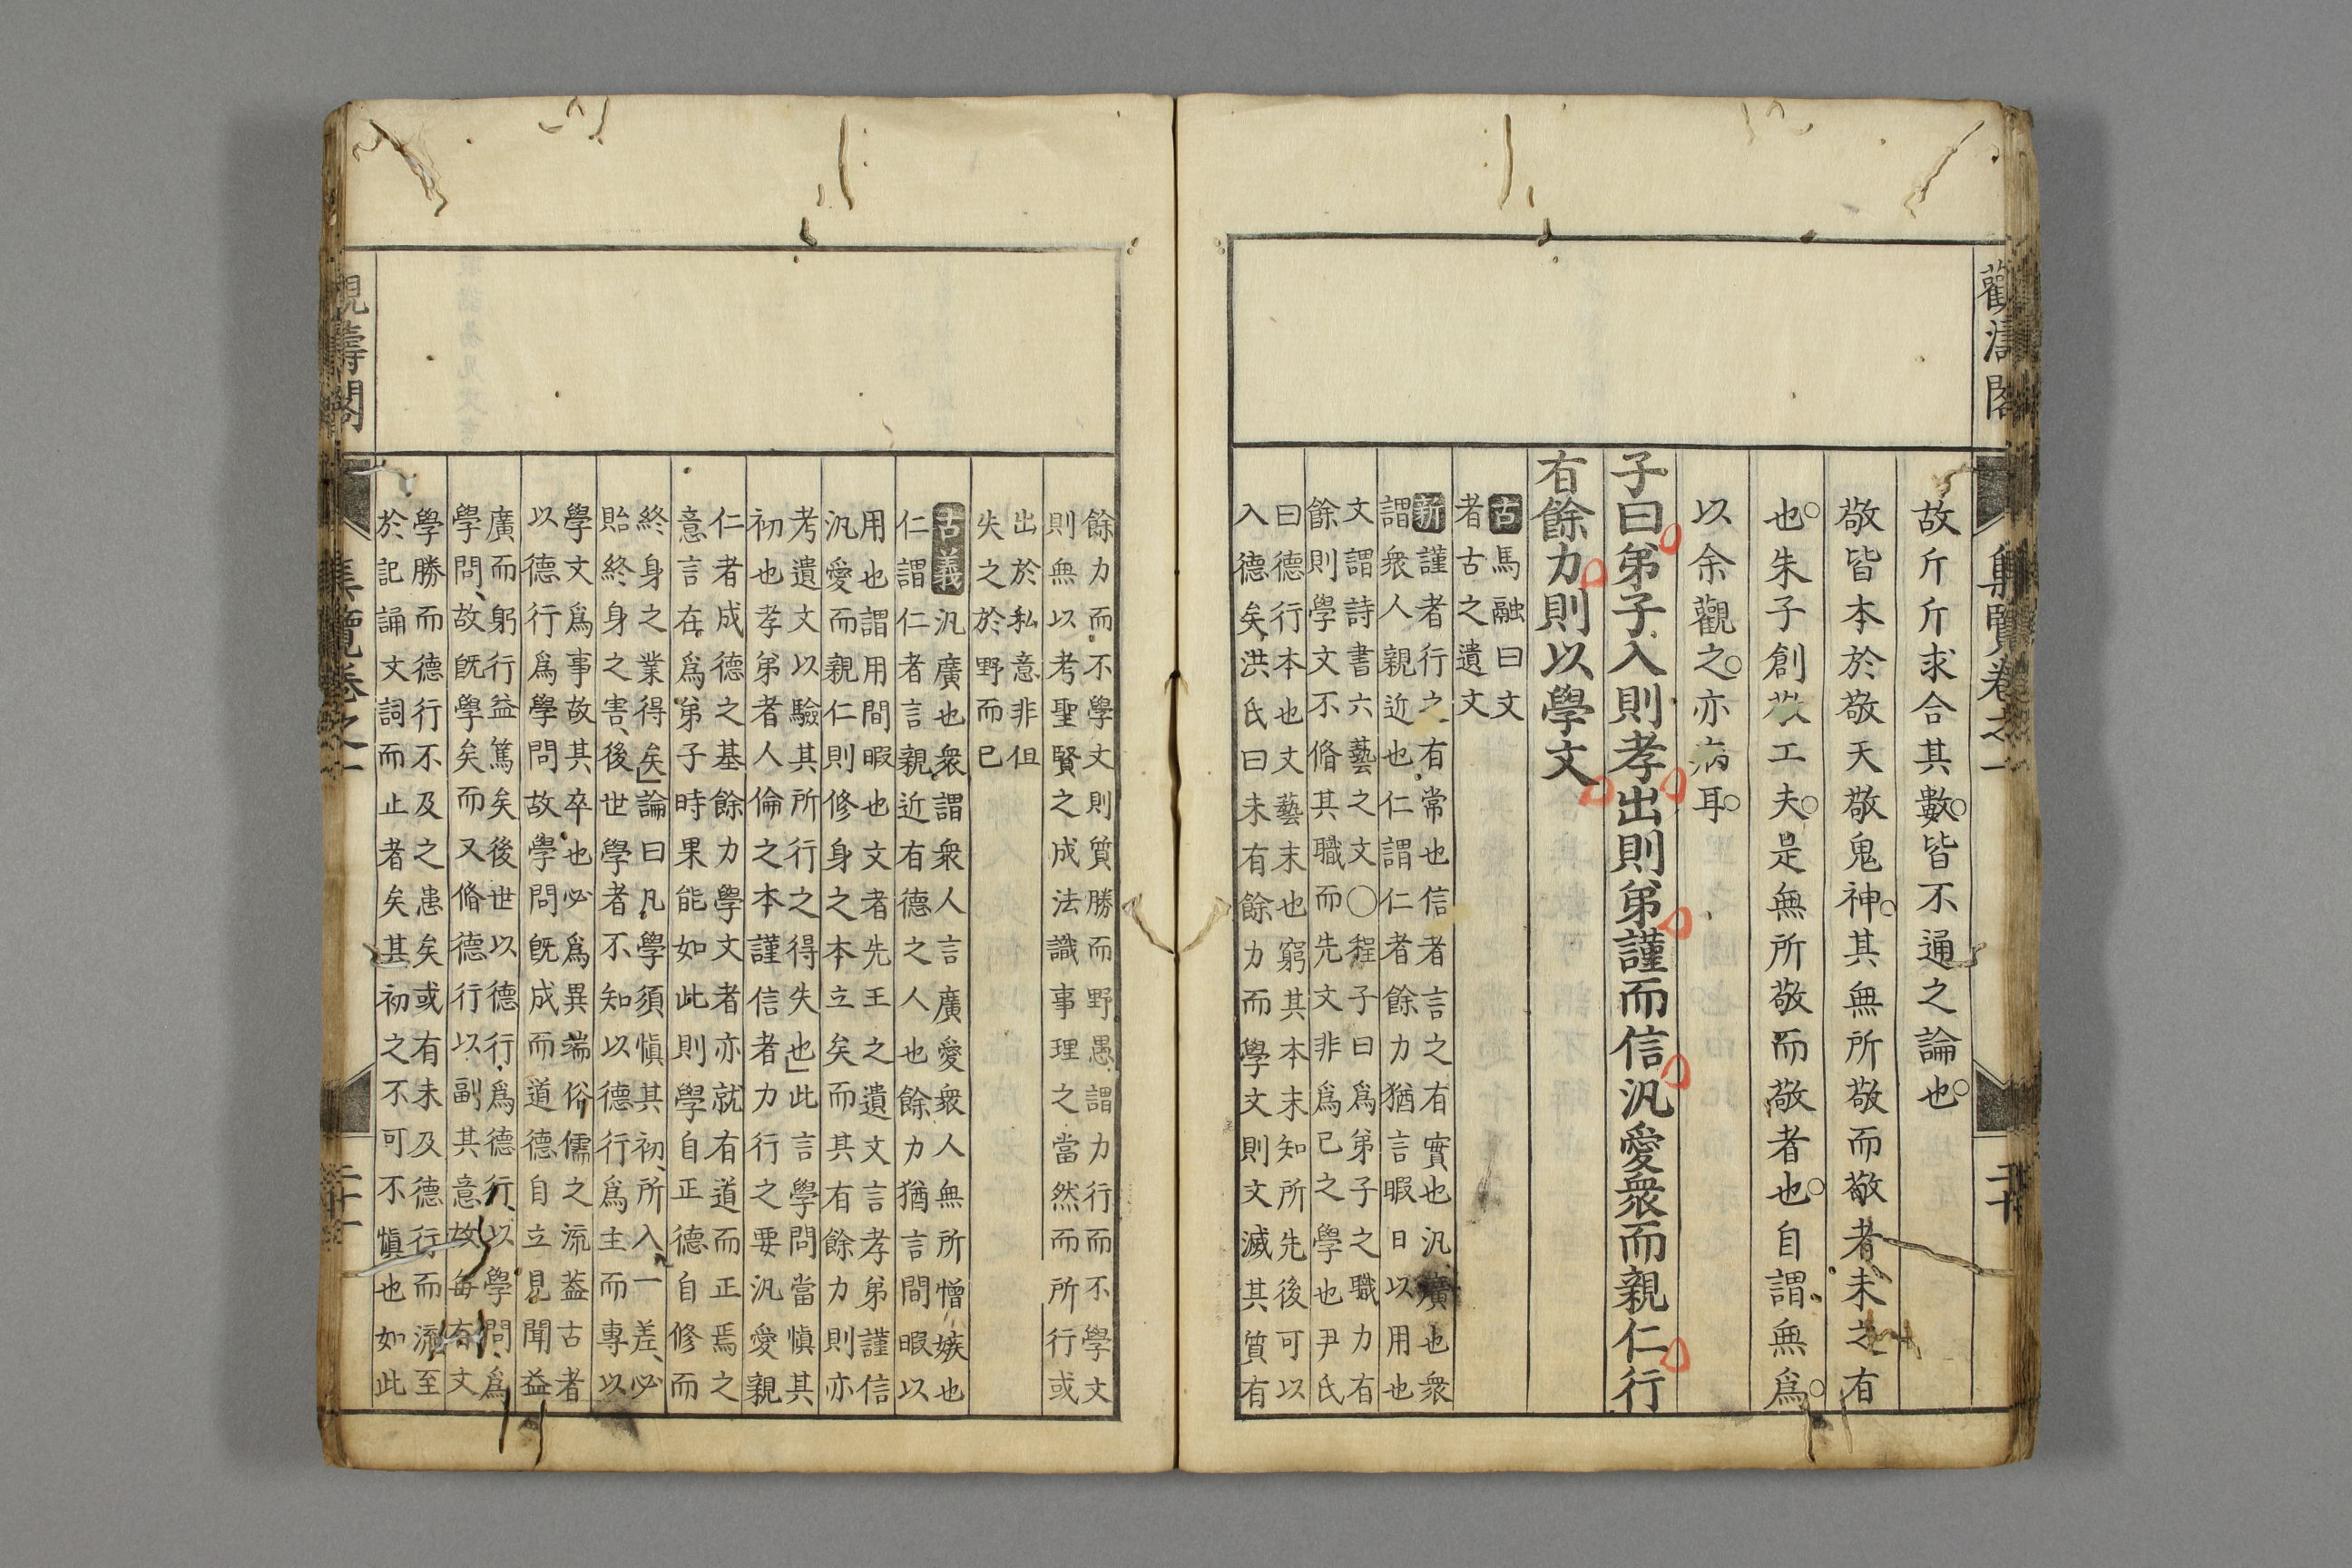 故斤斤求合其數皆不通之論也
敬皆本於敬天敬鬼神其無所敬而敬者未之有
也朱子創敬工夫是無所敬而敬者也自謂無爲
以余觀之亦病耳
子曰弟子入則孝出則弟謹而信汎愛衆而親仁行
有餘力則以學文
古馬融曰文
者古之遺文
新謹者行之有常也信者言之有實也汎廣也衆
謂衆人親近也仁謂仁者餘力猶言暇日以用也
文謂詩書六藝之文○程子曰爲弟子之職力有
餘則學文不脩其職而先文非爲己之學也尹氏
曰德行本也文藝末也窮其本末知所先後可以
入德矣洪氏曰未有餘力而學文則文滅其質有
集覽卷之一
二十
餘力而不學文則質勝而野愚謂力行而不學文
則無以考聖賢之成法識事理之當然而所行或
出於私意非但
失之於野而已
古義汎廣也衆謂衆人言廣愛衆人無所憎嫉也
仁謂仁者言親近有德之人也餘力猶言間暇以
用也謂用間暇也文者先王之遺文言孝弟謹信
汎愛而親仁則修身之本立矣而其有餘力則亦
考遺文以驗其所行之得失也此言學問當愼其
初也孝弟者人倫之本謹信者力行之要汎愛親
仁者成德之基餘力學文者亦就有道而正焉之
意言在爲弟子時果能如此則學自正德自修而
終身之業得矣論曰凡學須愼其初所入一差必
貽終身之害後世學者不知以德行爲主而專以
學文爲事故其卒也必爲異端俗儒之流葢古者
以德行爲學問故學問既成而道德自立見聞益
廣而躬行益篤矣後世以德行爲德行以學問爲
學問故既學矣而又脩德行以副其意故每有文
學勝而德行不及之患矣或有未及德行而流至
於記誦文詞而止者矣其初之不可不愼也如此
觀濤閣
集覽卷之一
二十一